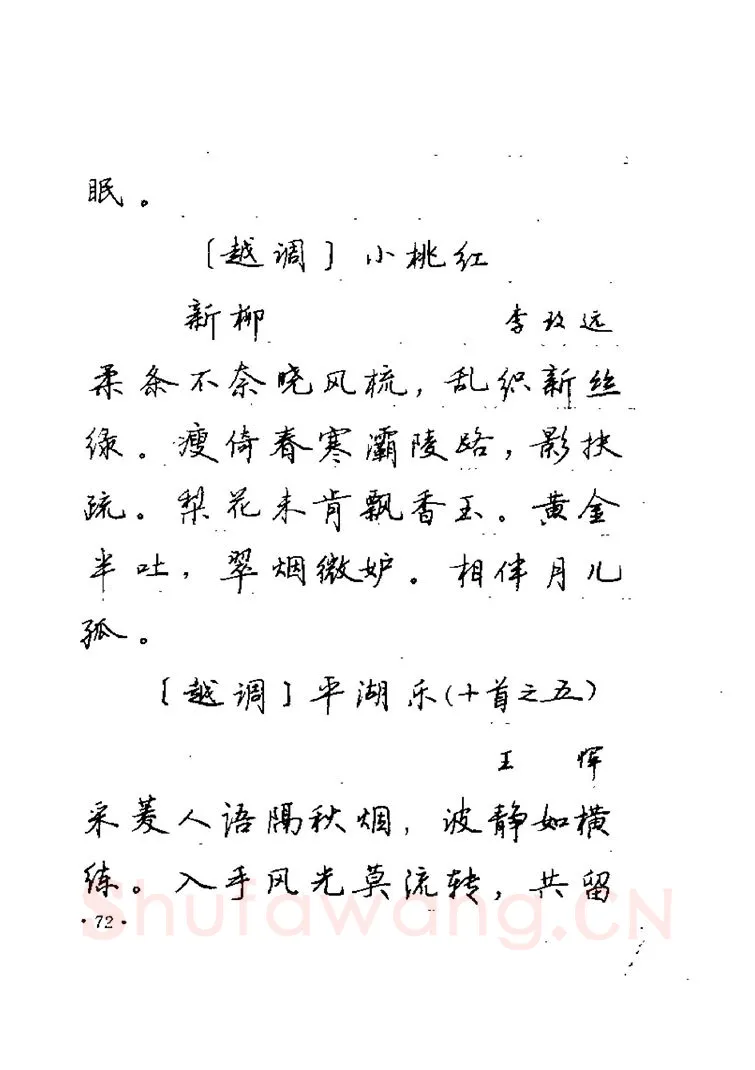 眠。
〔越调〕小桃红
新柳 李致远
柔条不奈晓风梳，乱织新丝
绿。瘦倚春寒灞陵路，影扶
疏。梨花未肯飘香玉。黄金
半吐，翠烟微妒。相伴月儿
孤。
〔越调〕平湖乐(十首之五)
王 恽
采菱人语隔秋烟，波静如横
练。入手风光莫流转，共留
·72·
Shufawang.CN